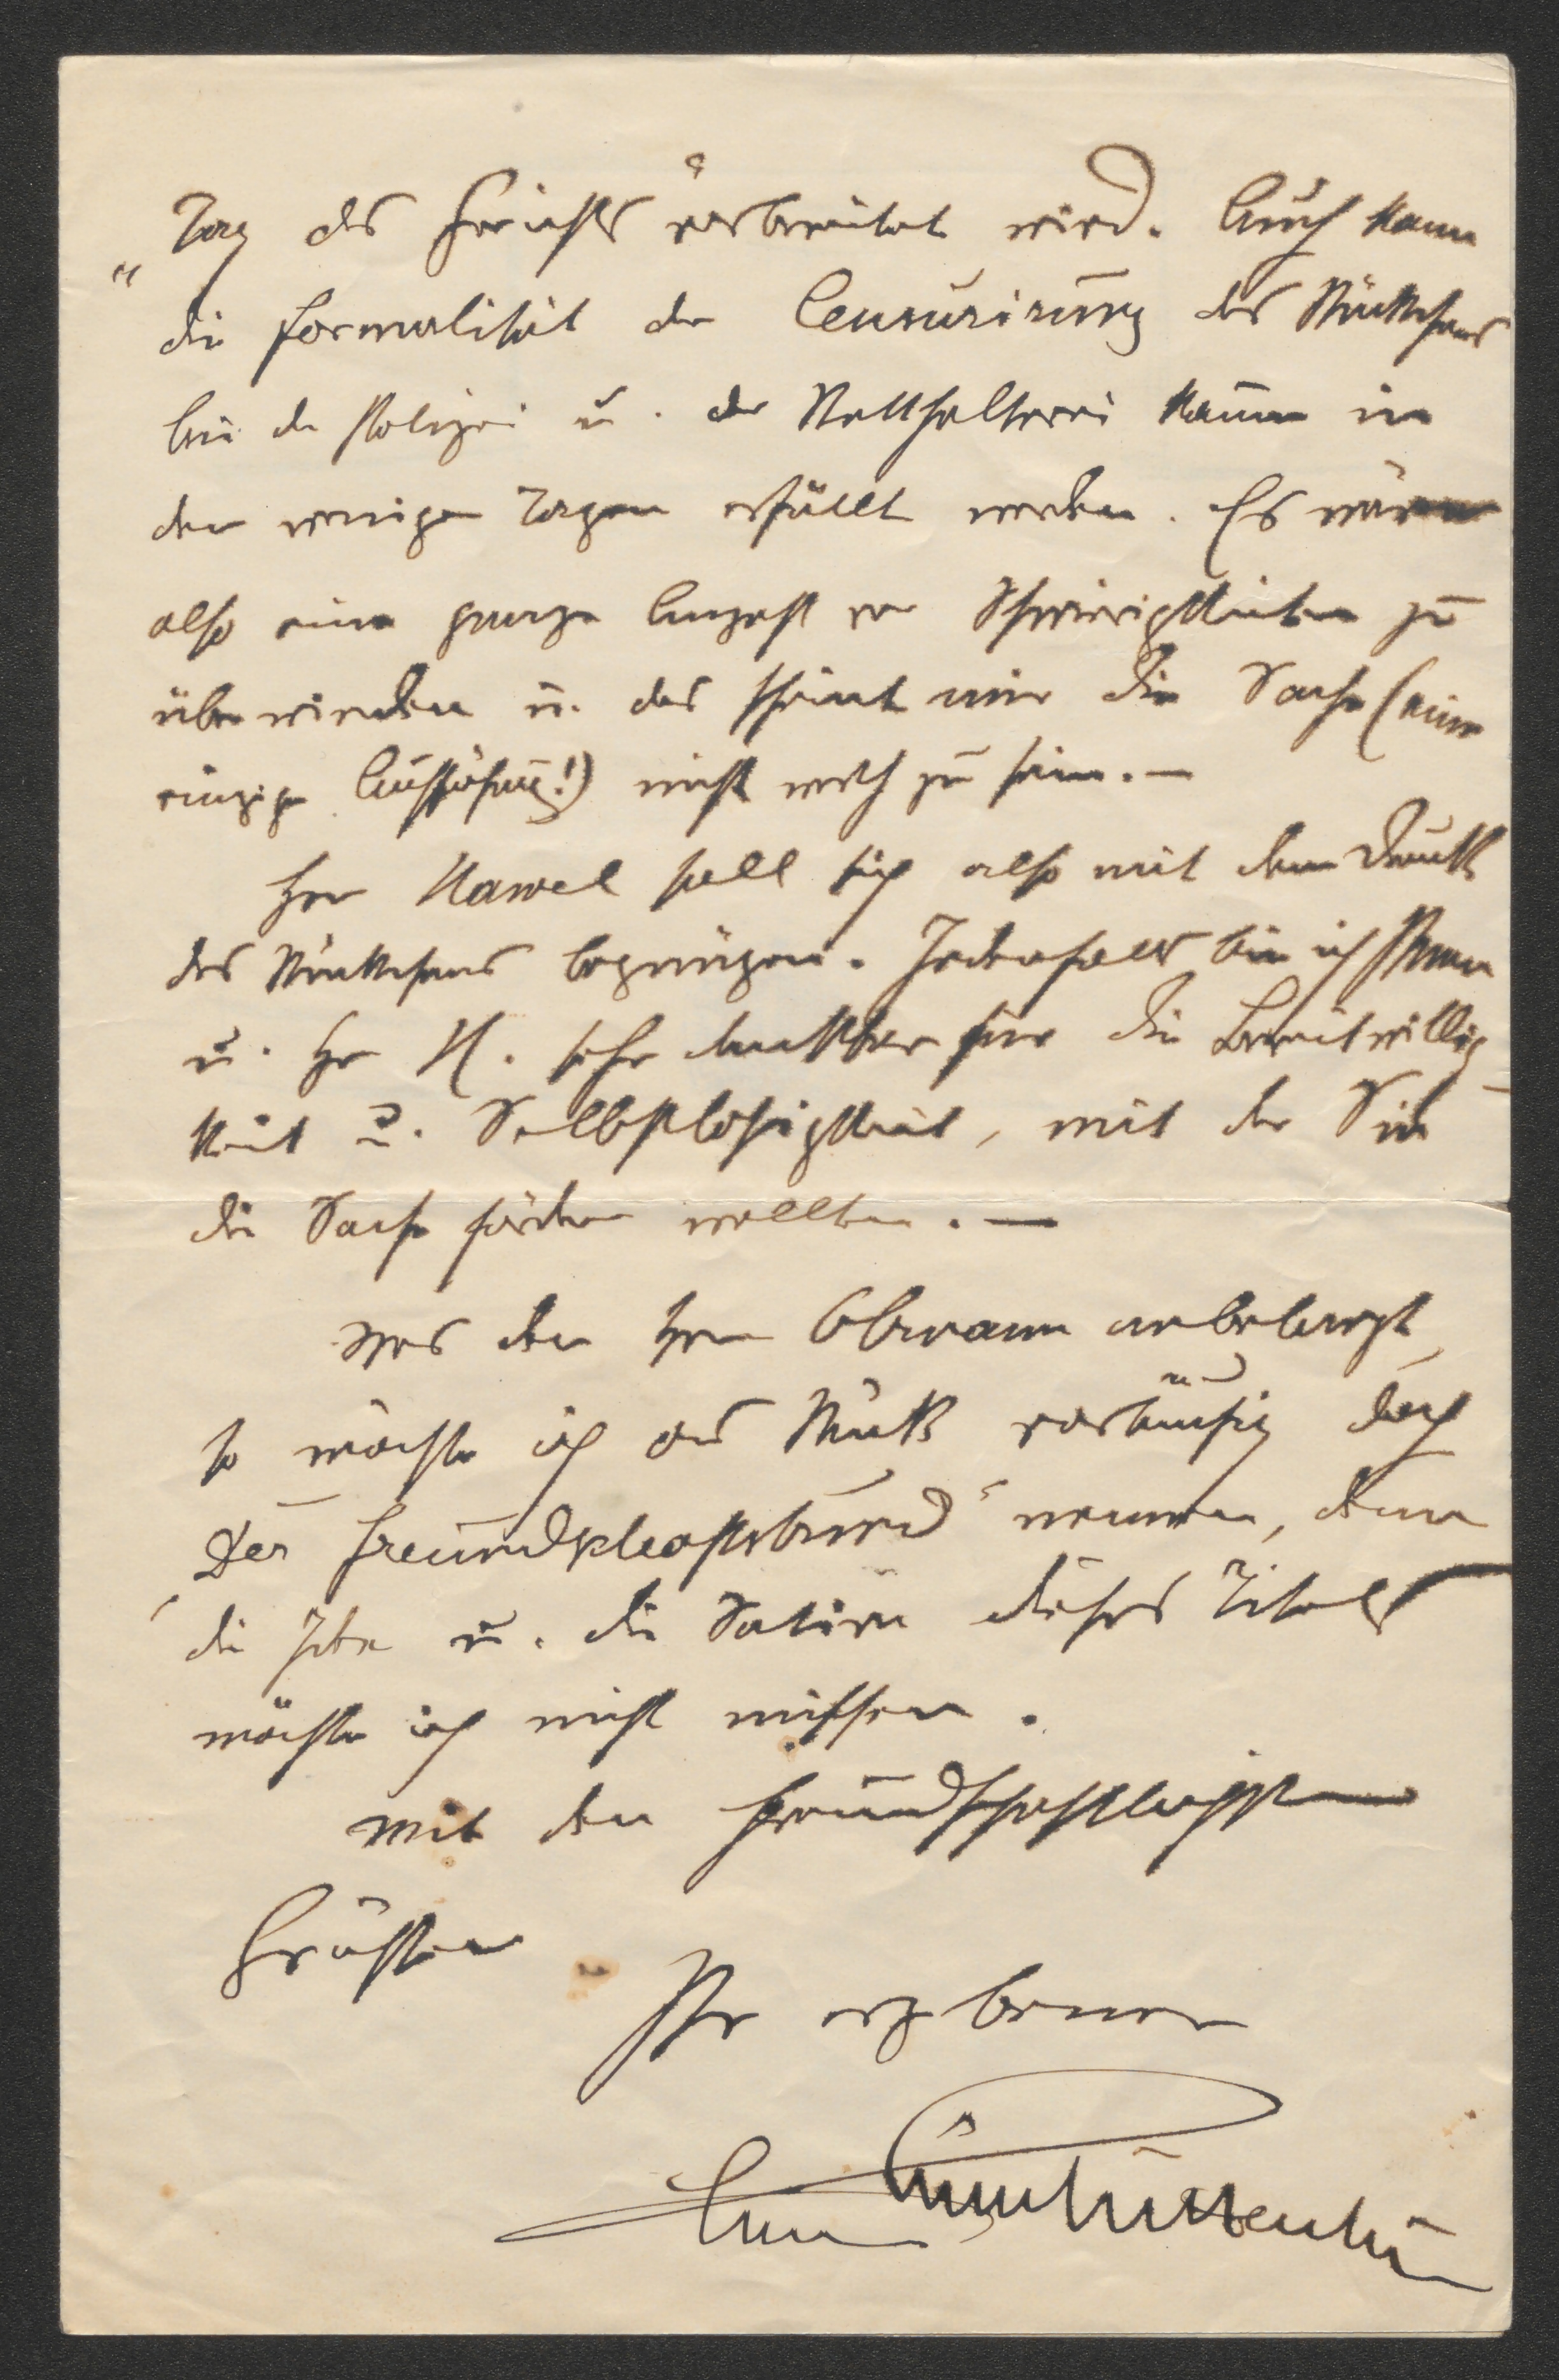 „Tag des Gerichts" vorbereitet wird. Auch kann
die Formalität der Censurirung des Stückchens
bei der Polizei u. der Statthalterei kaum in
den wenigen Tagen erfüllt werden. Es wären
also eine ganze Anzahl von Schwierigkeiten zu
überwinden u. das scheint mir die Sache (eine
einzige Aufführung!) nicht werth zu sein. —
Herr Hawel soll sich also mit dem Druck
des Stückchens begnügen. Jedenfalls bin ich Ihnen
u. Hr H. sehr dankbar für die Bereitwillig-
keit u. Selbstlosigkeit, mit der Sie
die Sache fördern wollten. —
Was den Herrn Obmann anbelangt,
so möchte ich das Stück vorläufig doch
„Der Freundschaftsbund" nennen, denn
die Idee u. die Satire dieses Titels
möchte ich nicht missen.
Mit den freundschaftlichsten
Grüßen
Ihr ergebener